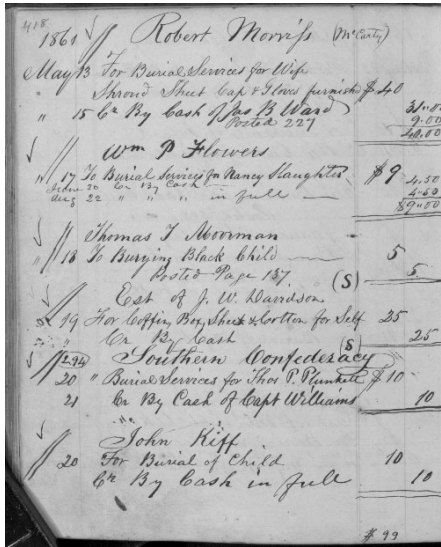 418
1861 Robert Morriss (McCarty)
May 13 For Burial Services for Wife
Shroud Sheet Cap & Gloves furnished $40
" 15 Cr By Cash of Jas B Ward 31.00
Posted 227 9.00
40.00
Wm P Flowers
" 17 To Burial Services for Nancy Slaughter $9
June 20 Cr By Cash 4.50
Aug 22 " " " in full 4.50
$9.00
Thomas T Moorman
" 18 To Burying Black Child 5
Posted Page 137 5
(S)
Est of J. W. Davidson
" 19 For Coffin Box, Sheet & Cotton for Self 25
" Cr By Cash 25
(S)
294 Southern Confederacy
20 " Burial Services for Thos P. Plunkett $10
21 Cr By Cash of Capt Williams 10
John Kiff
20 For Burial of Child 10
Cr By Cash in full 10
$99